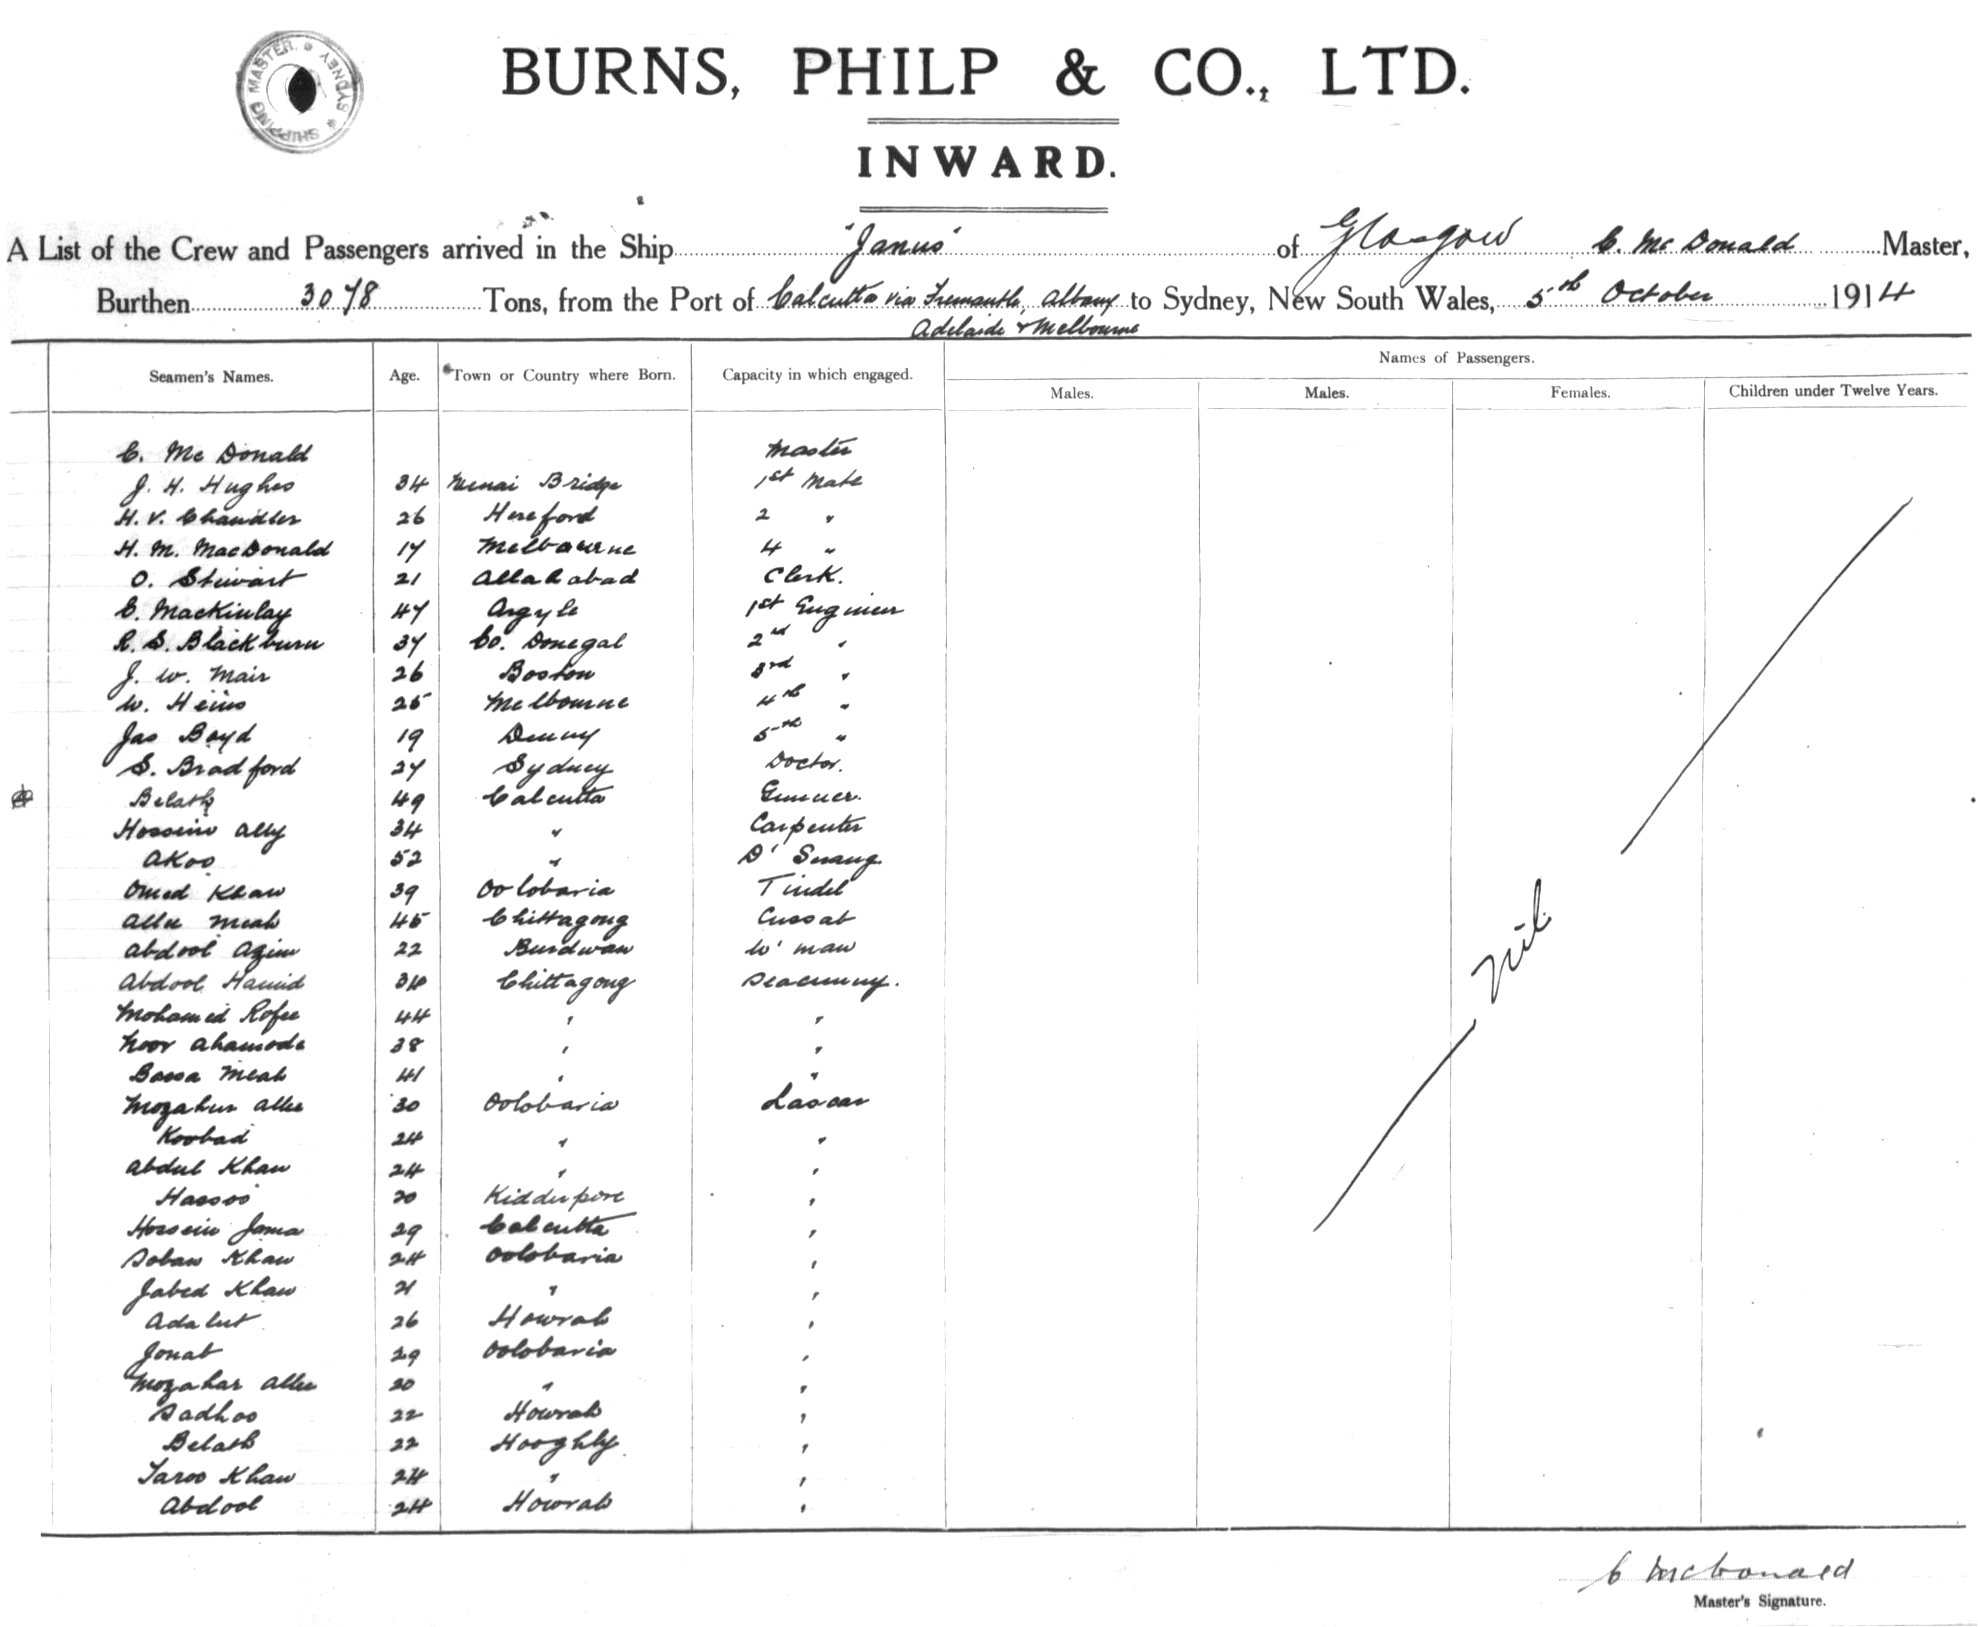 SHIPPING MASTER. SYDNEY
BURNS, PHILP & CO., LTD.
INWARD.
A List of the Crew and Passengers arrived in the Ship "Janus" of Glasgow C. McDonald Master,
Burthen 3078 Tons, from the Port of Calcutta via Fremantle, Albany to Sydney, New South Wales, 5th October 1914
Adelaide & Melbourne
Names of Passengers.
Seamen's Names. Age. Town or Country where Born. Capacity in which engaged. Males. Males. Females. Children under Twelve Years.
C. McDonald Master
J. H. Hughes 34 Menai Bridge 1st Mate
H. V. Chandler 26 Hereford 2 "
H. M. MacDonald 17 Melbourne 4 "
O. Stewart 21 Allahabad Clerk.
C. MacKinlay 47 Argyle 1st Engineer
R. S. Blackburn 37 Co. Donegal 2nd "
J. W. Mair 26 Boston 3rd "
W. Heins 25 Melbourne 4th "
Jas Boyd 19 Denny 5th "
S. Bradford 27 Sydney Doctor.
Belath 49 Calcutta Gunner.
Hossein Ally 34 " Carpenter
Akoo 52 " D' Serang
Omed Khan 39 Oolobaria Tindel
Allee Meah 45 Chittagong Cussab
Abdool Azim 22 Burdwan W' man
Abdool Hamid 34 Chittagong Seacunny.
Mohamed Rofee 44 " "
Noor Ahamode 38 " "
Bassa Meah 41 " "
Mozahur Allee 30 Oolobaria Lascar
Koobad 24 " "
Abdul Khan 24 " "
Hassoo 20 Kidderpore "
Hossein Jama 29 Calcutta "
Soban Khan 24 Oolobaria "
Jabed Khan 21 " "
Adalut 26 Howrah "
Jonab 29 Oolobaria "
Mozahar Allee 20 " "
Sadhoo 22 Howrah "
Belath 22 Hooghly "
Taroo Khan 24 " "
Abdool 24 Howrah "
Nil.
C McDonald
Master's Signature.